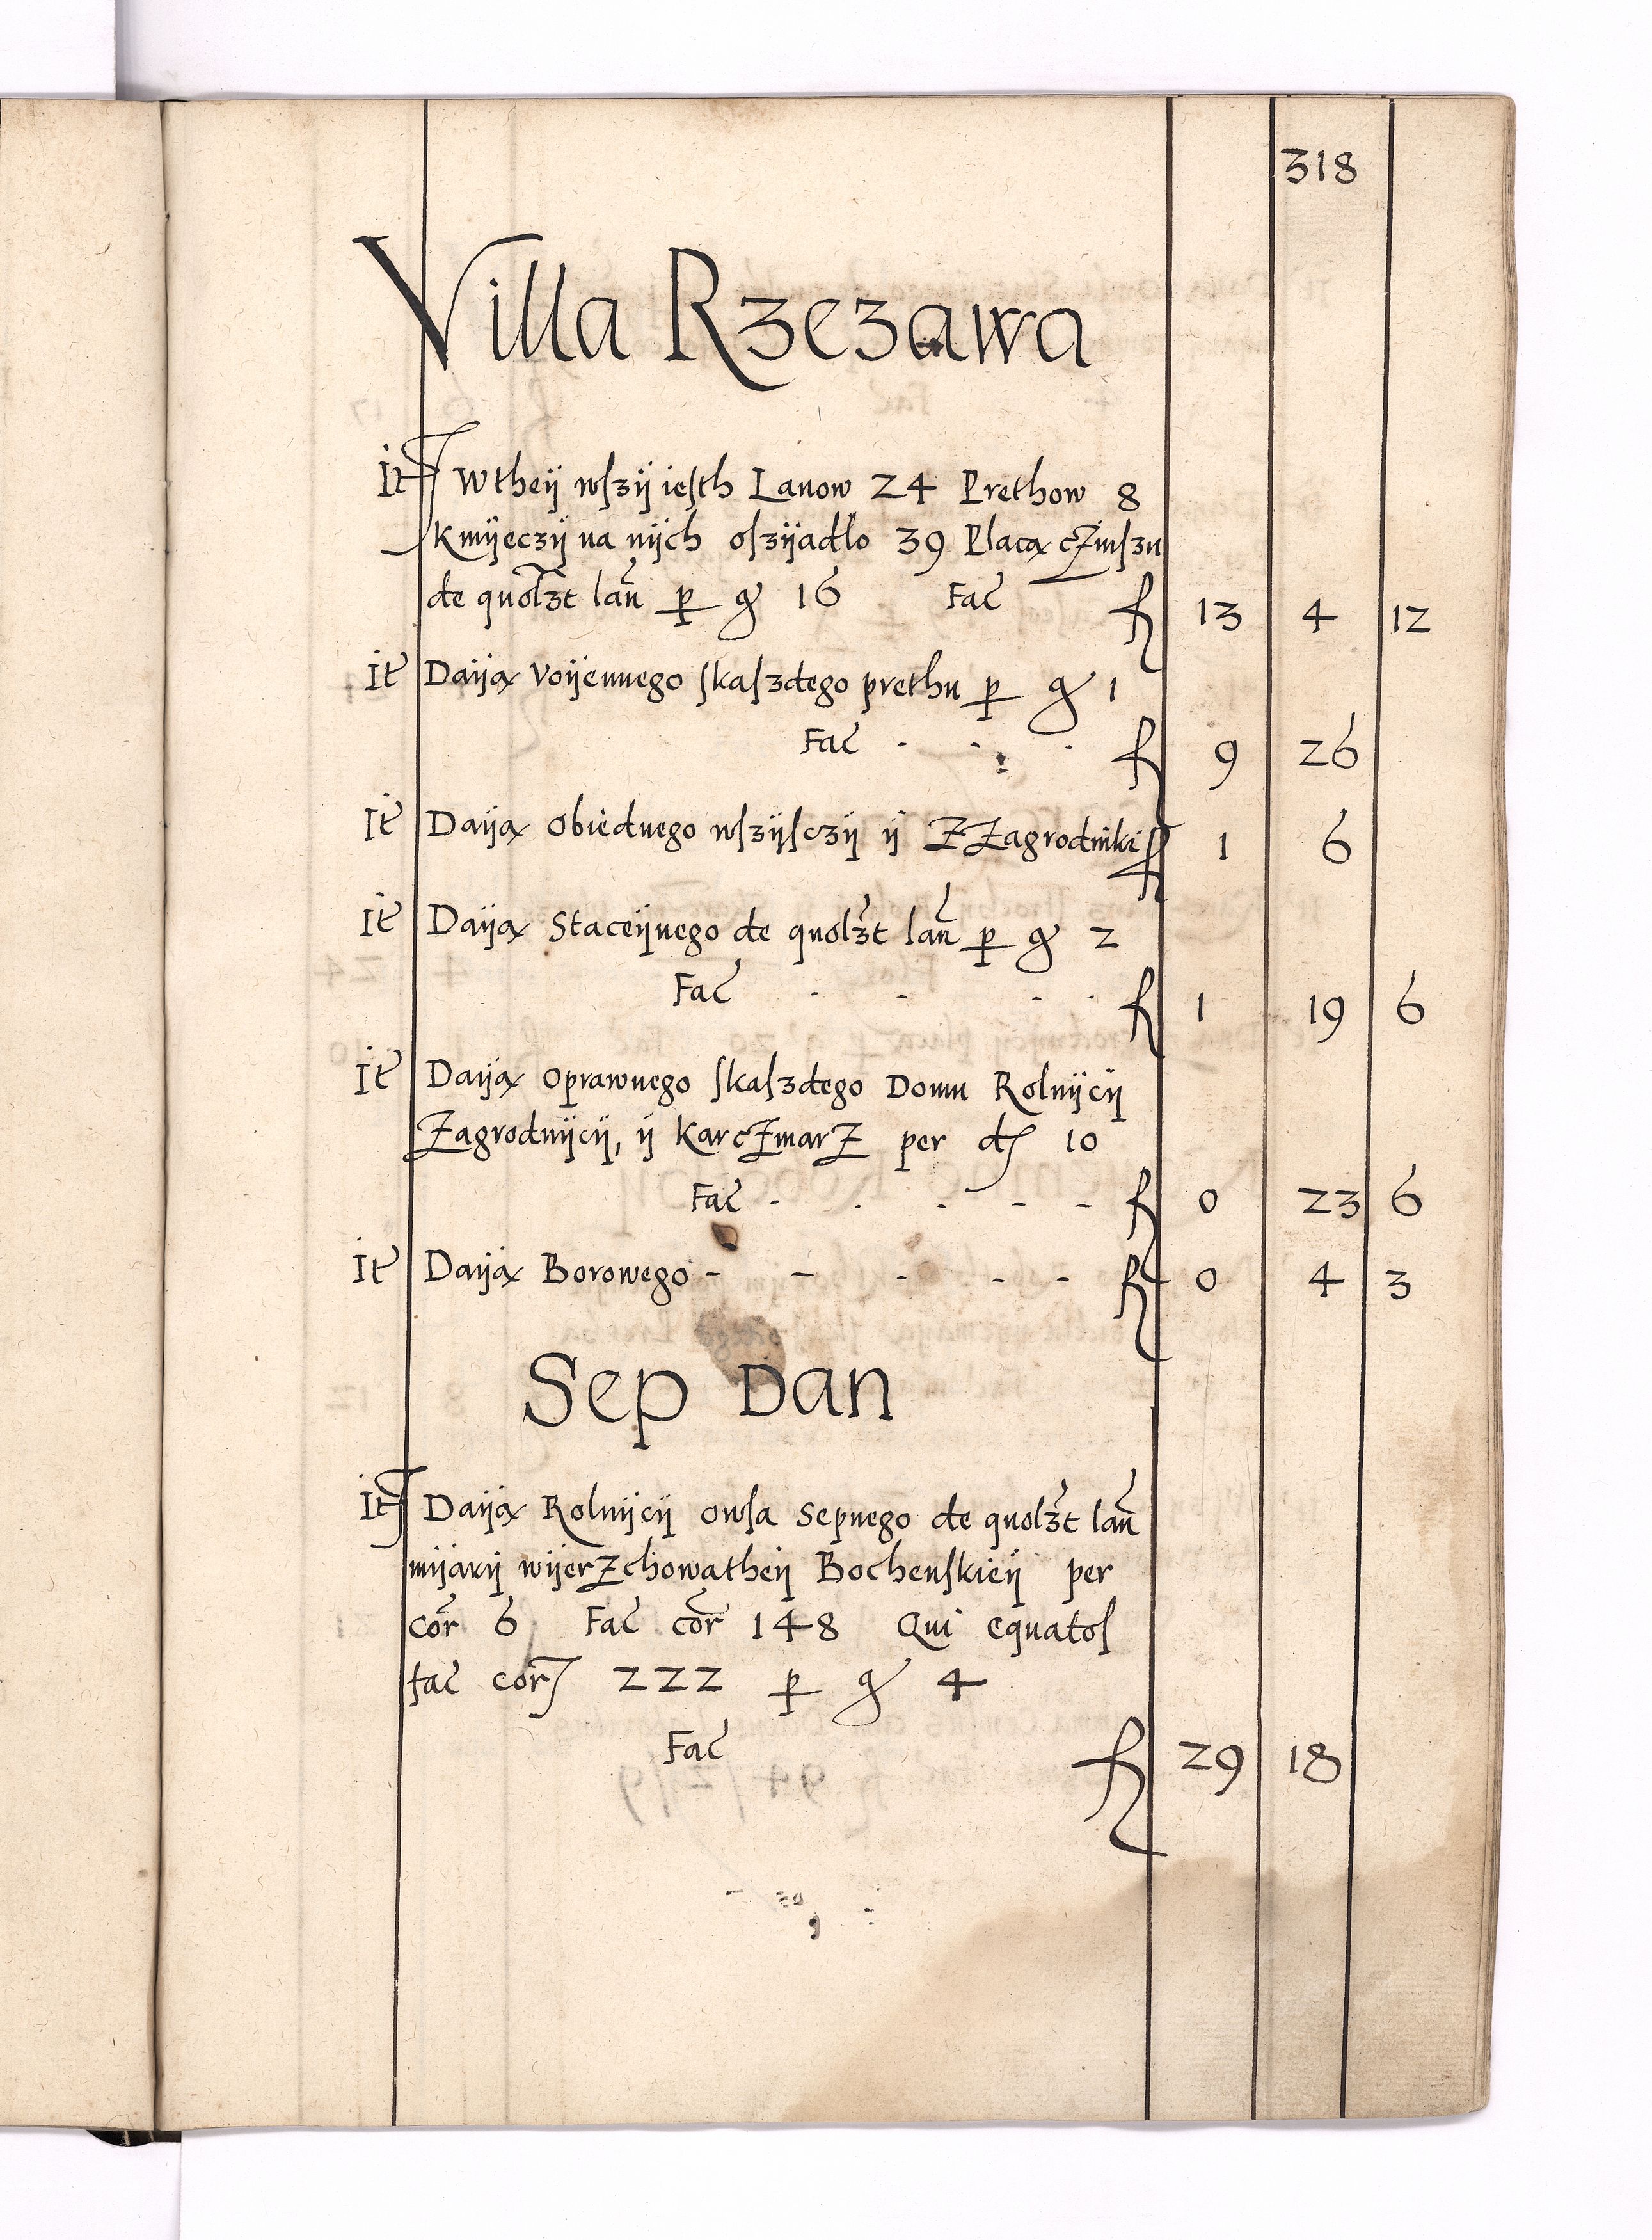 318
Villa Rzezawa
It Wtheÿ wſzÿ ieſth Lanow 24 Prethow 8
Kmÿeczÿ na nÿch oſzÿadlo 39 Placą cZinſzu
de quolꝫt lañ ꝑ gͬ 16 Fac̃ fl 13 4 12
It Daÿą Voÿennego ſkaſzdego prethu ꝑ gͬ 1
Fac̃ . . . fl 9 26
It Daÿą Obiednego wſzÿſczÿ ÿ ZZagrodniki fl 1 6
It Daÿą Staceÿnego de quolꝫt lañ ꝑ gͬ 2
Fac̃ . . . . fl 1 19 6
It Daÿą Oprawnego ſkaſzdego Domu Rolnÿcÿ
Zagrodnÿcÿ, ÿ KarcZmarZ per dſ 10
Fac̃ - . . - - fl 0 23 6
It Daÿą Borowego - - - - - fl 0 4 3
Sep Dan
It Daÿą Rolnÿcÿ owſa Sepnego de quolꝫt lañ
mÿarÿ wÿerZchowatheÿ Bochenſkieÿ per
cor̃ 6 Fac̃ cor̃ 148 Qui equatoſ
fac̃ cor̃ 222 ꝑ gͬ 4
Fac̃ fl 29 18